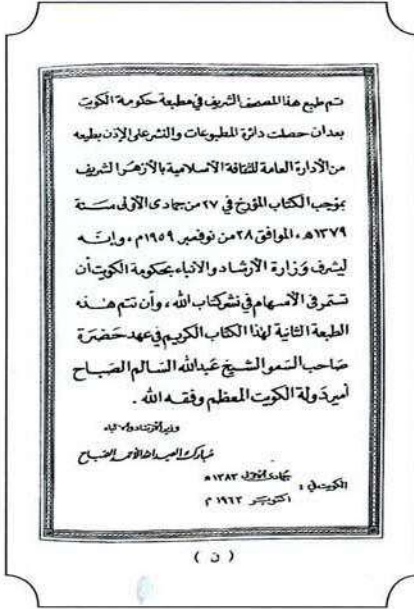 تم طبع هذا المصحف الشريف في مطبعة حكومة الكويت
بعد ان حصلت دائرة المطبوعات والنشر على الإذن بطبعه
من الأدارة العامة للثقافة الأسلامية بالأزهر الشريف
بموجب الكتاب المؤرخ في ٢٧ من جمادى الأولى سنة
١٣٧٩ه ، الموافق ٢٨ من نوفمبر ١٩٥٩م ، وإنه
ليشرف وزارة الأرشاد والانباء بحكومة الكويت أن
تستمر في الأسهام في نشر كتاب الله ، وأن تتم هذه
الطبعة الثانية لهذا الكتاب الكريم في عهد حضرة
صاحب السمو الشيخ عبدالله السالم الصباح
أمير دولة الكويت المعظم وفقه الله .
وزير الارشاد والانباء
مبارك العبدالله الأحمد الصباح
الكويت في : جمادى الأولى ١٣٨٣ ه
اكتوبر ١٩٦٣ م
( ن )